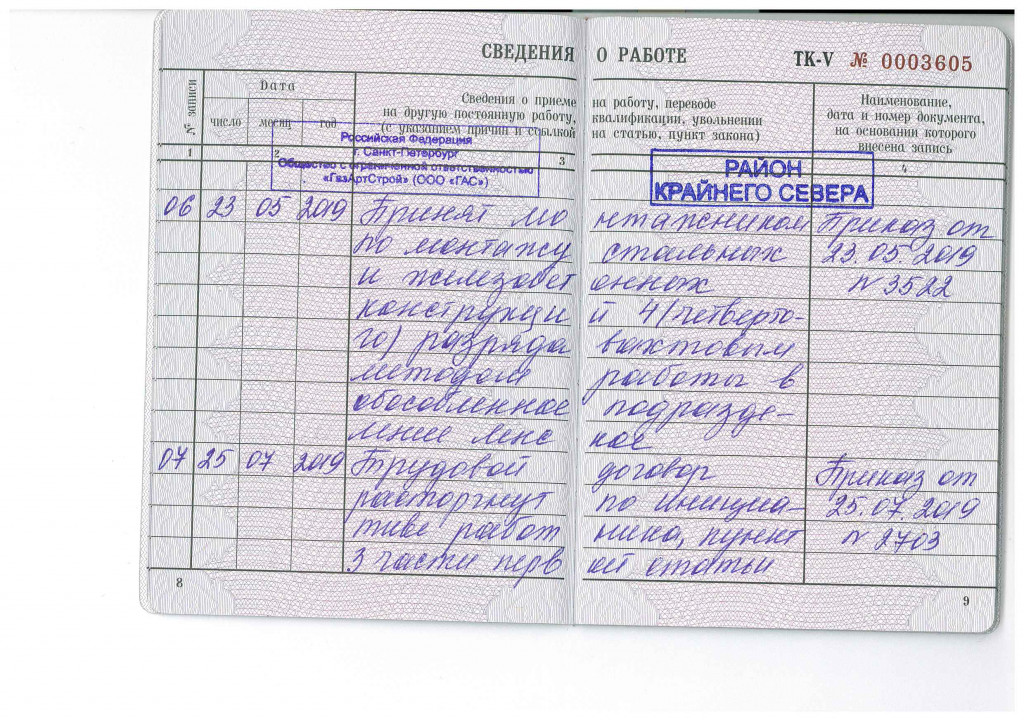 СВЕДЕНИЯ О РАБОТЕ ТК-V № 0003605
№ записи
Дата
число месяц год
Сведения о приеме на работу, переводе
на другую постоянную работу, квалификации, увольнении
(с указанием причин и ссылкой на статью, пункт закона)
Наименование,
дата и номер документа,
на основании которого
внесена запись
1 2 3 4
Российская Федерация
г. Санкт-Петербург
Общество с ограниченной ответственностью
«ГазАртСтрой» (ООО «ГАС»)
РАЙОН
КРАЙНЕГО СЕВЕРА
06 23 05 2019 Принят монтажником Приказ от
по монтажу стальных 23.05.2019
и железобетонных № 3522
конструкций 4/четверто-
го) разряда вахтовым
методом работы в
обособленное подразде-
ление ленское
07 25 07 2019 Трудовой договор Приказ от
расторгнут по инициа- 25.07.2019
тиве работника, пункт № 2703
3 части первой статьи
8
9